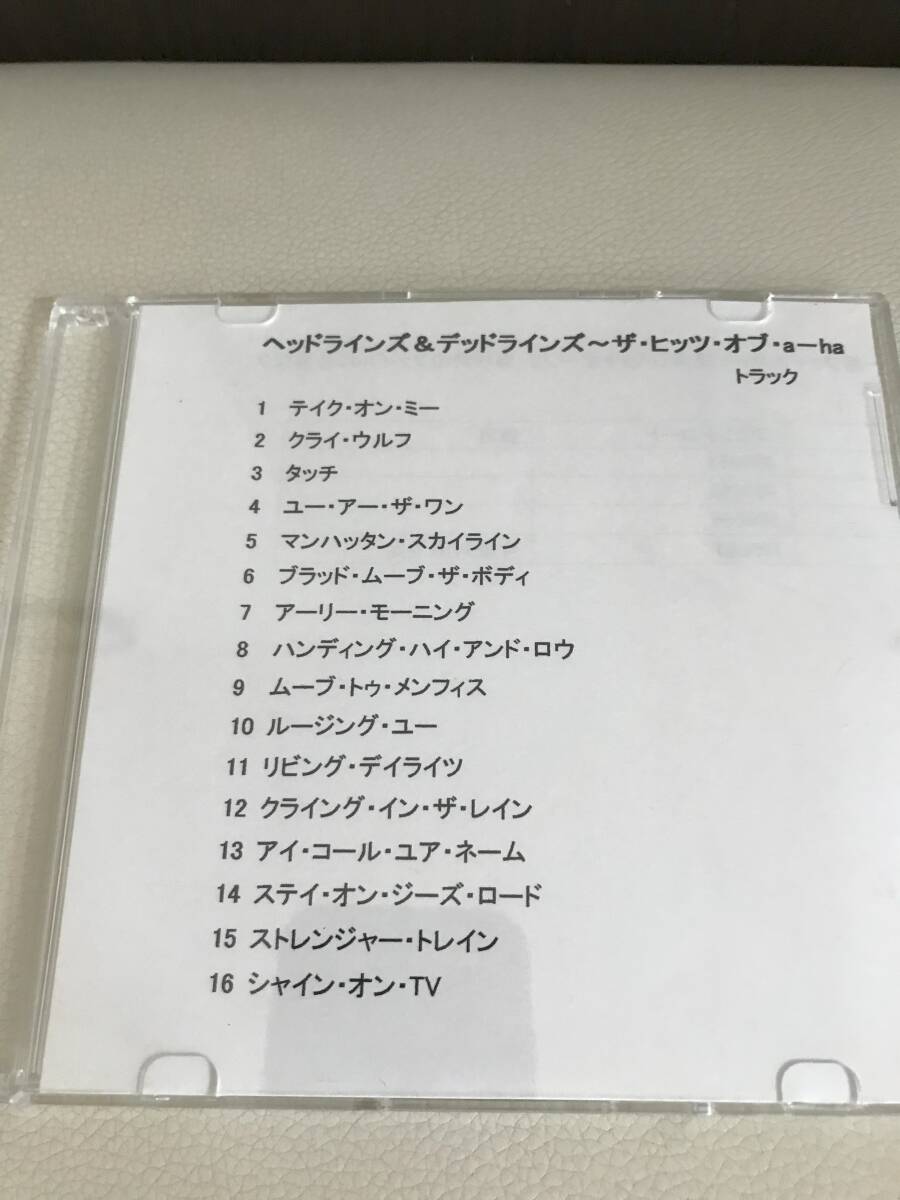 ヘッドラインズ＆デッドラインズ～ザ・ヒッツ・オブ・a－ha
トラック
1 テイク・オン・ミー
2 クライ・ウルフ
3 タッチ
4 ユー・アー・ザ・ワン
5 マンハッタン・スカイライン
6 ブラッド・ムーブ・ザ・ボディ
7 アーリー・モーニング
8 ハンディング・ハイ・アンド・ロウ
9 ムーブ・トゥ・メンフィス
10 ルージング・ユー
11 リビング・デイライツ
12 クライング・イン・ザ・レイン
13 アイ・コール・ユア・ネーム
14 ステイ・オン・ジーズ・ロード
15 ストレンジャー・トレイン
16 シャイン・オン・TV